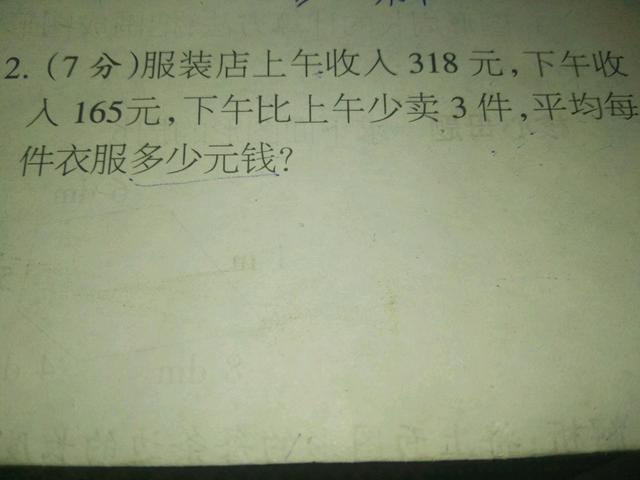 2. (7分)服装店上午收入318元,下午收
入165元,下午比上午少卖3件,平均每
件衣服多少元钱?